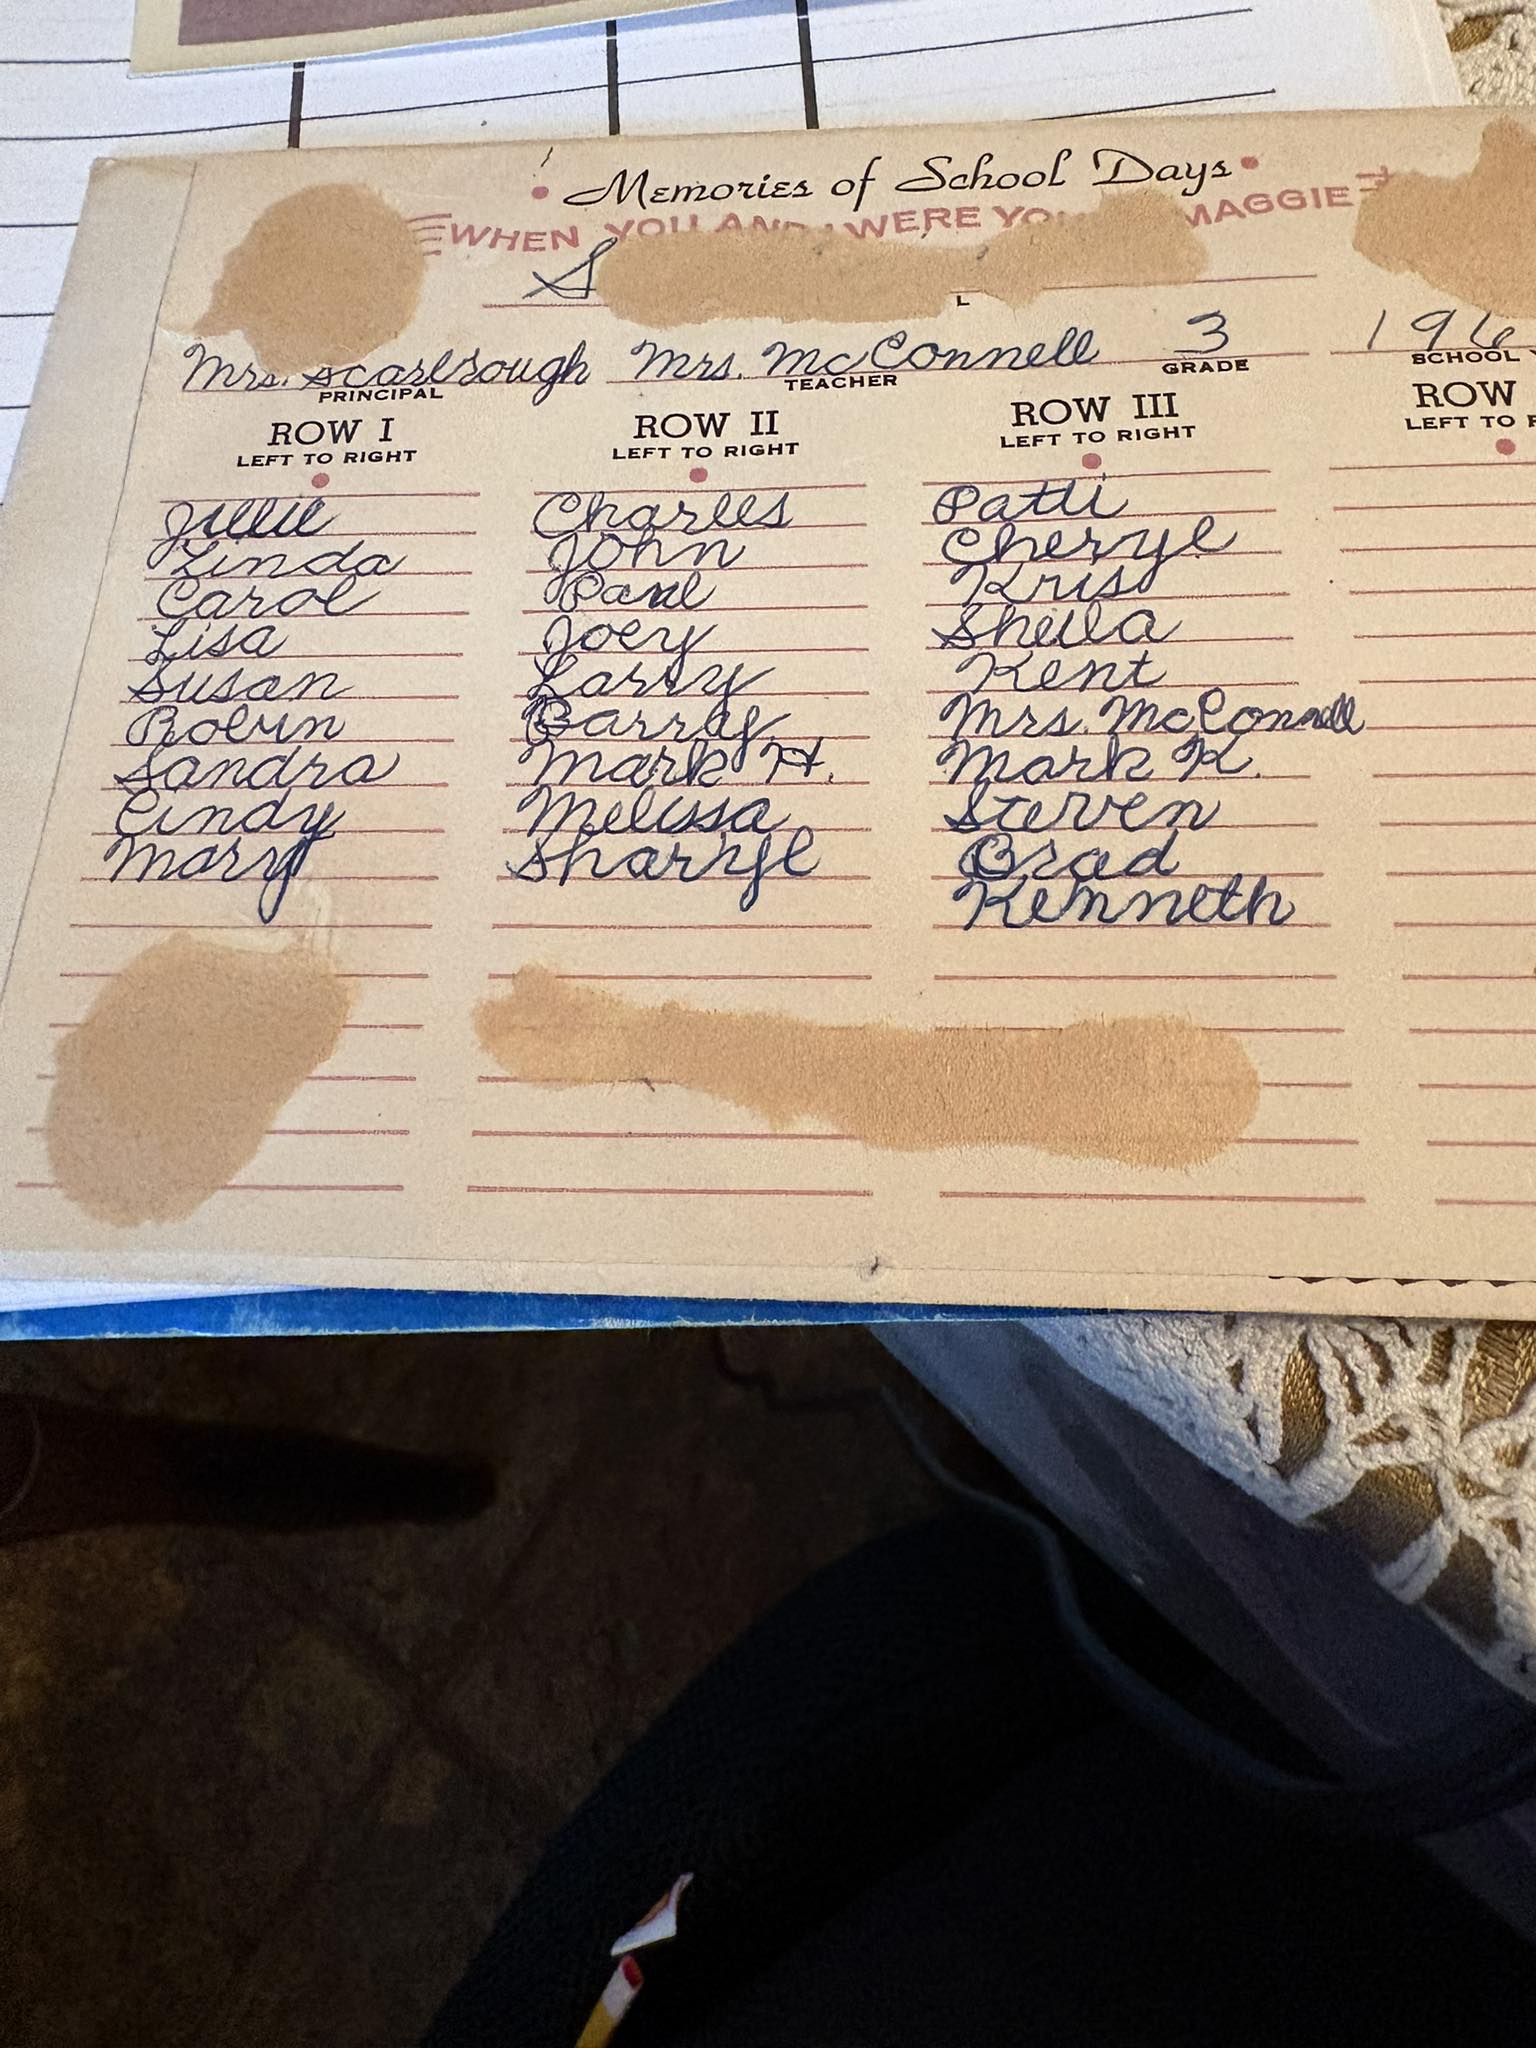 Memories of School Days
WHEN YOU AND WERE MAGGIE
Mrs. Scarbrough Mrs. McConnell 3 196
PRINCIPAL TEACHER GRADE SCHOOL
ROW I ROW II ROW III ROW
LEFT TO RIGHT LEFT TO RIGHT LEFT TO RIGHT LEFT TO
Jullie Charles Patti
Linda John Cheryl
Carol Paul Kris
Lisa Joey Sheila
Susan Larry Kent
Robin Barry Mrs. McConnell
Sandra Mark H. Mark K.
Cindy Melissa Steven
Mary Sharryl Brad
Kenneth